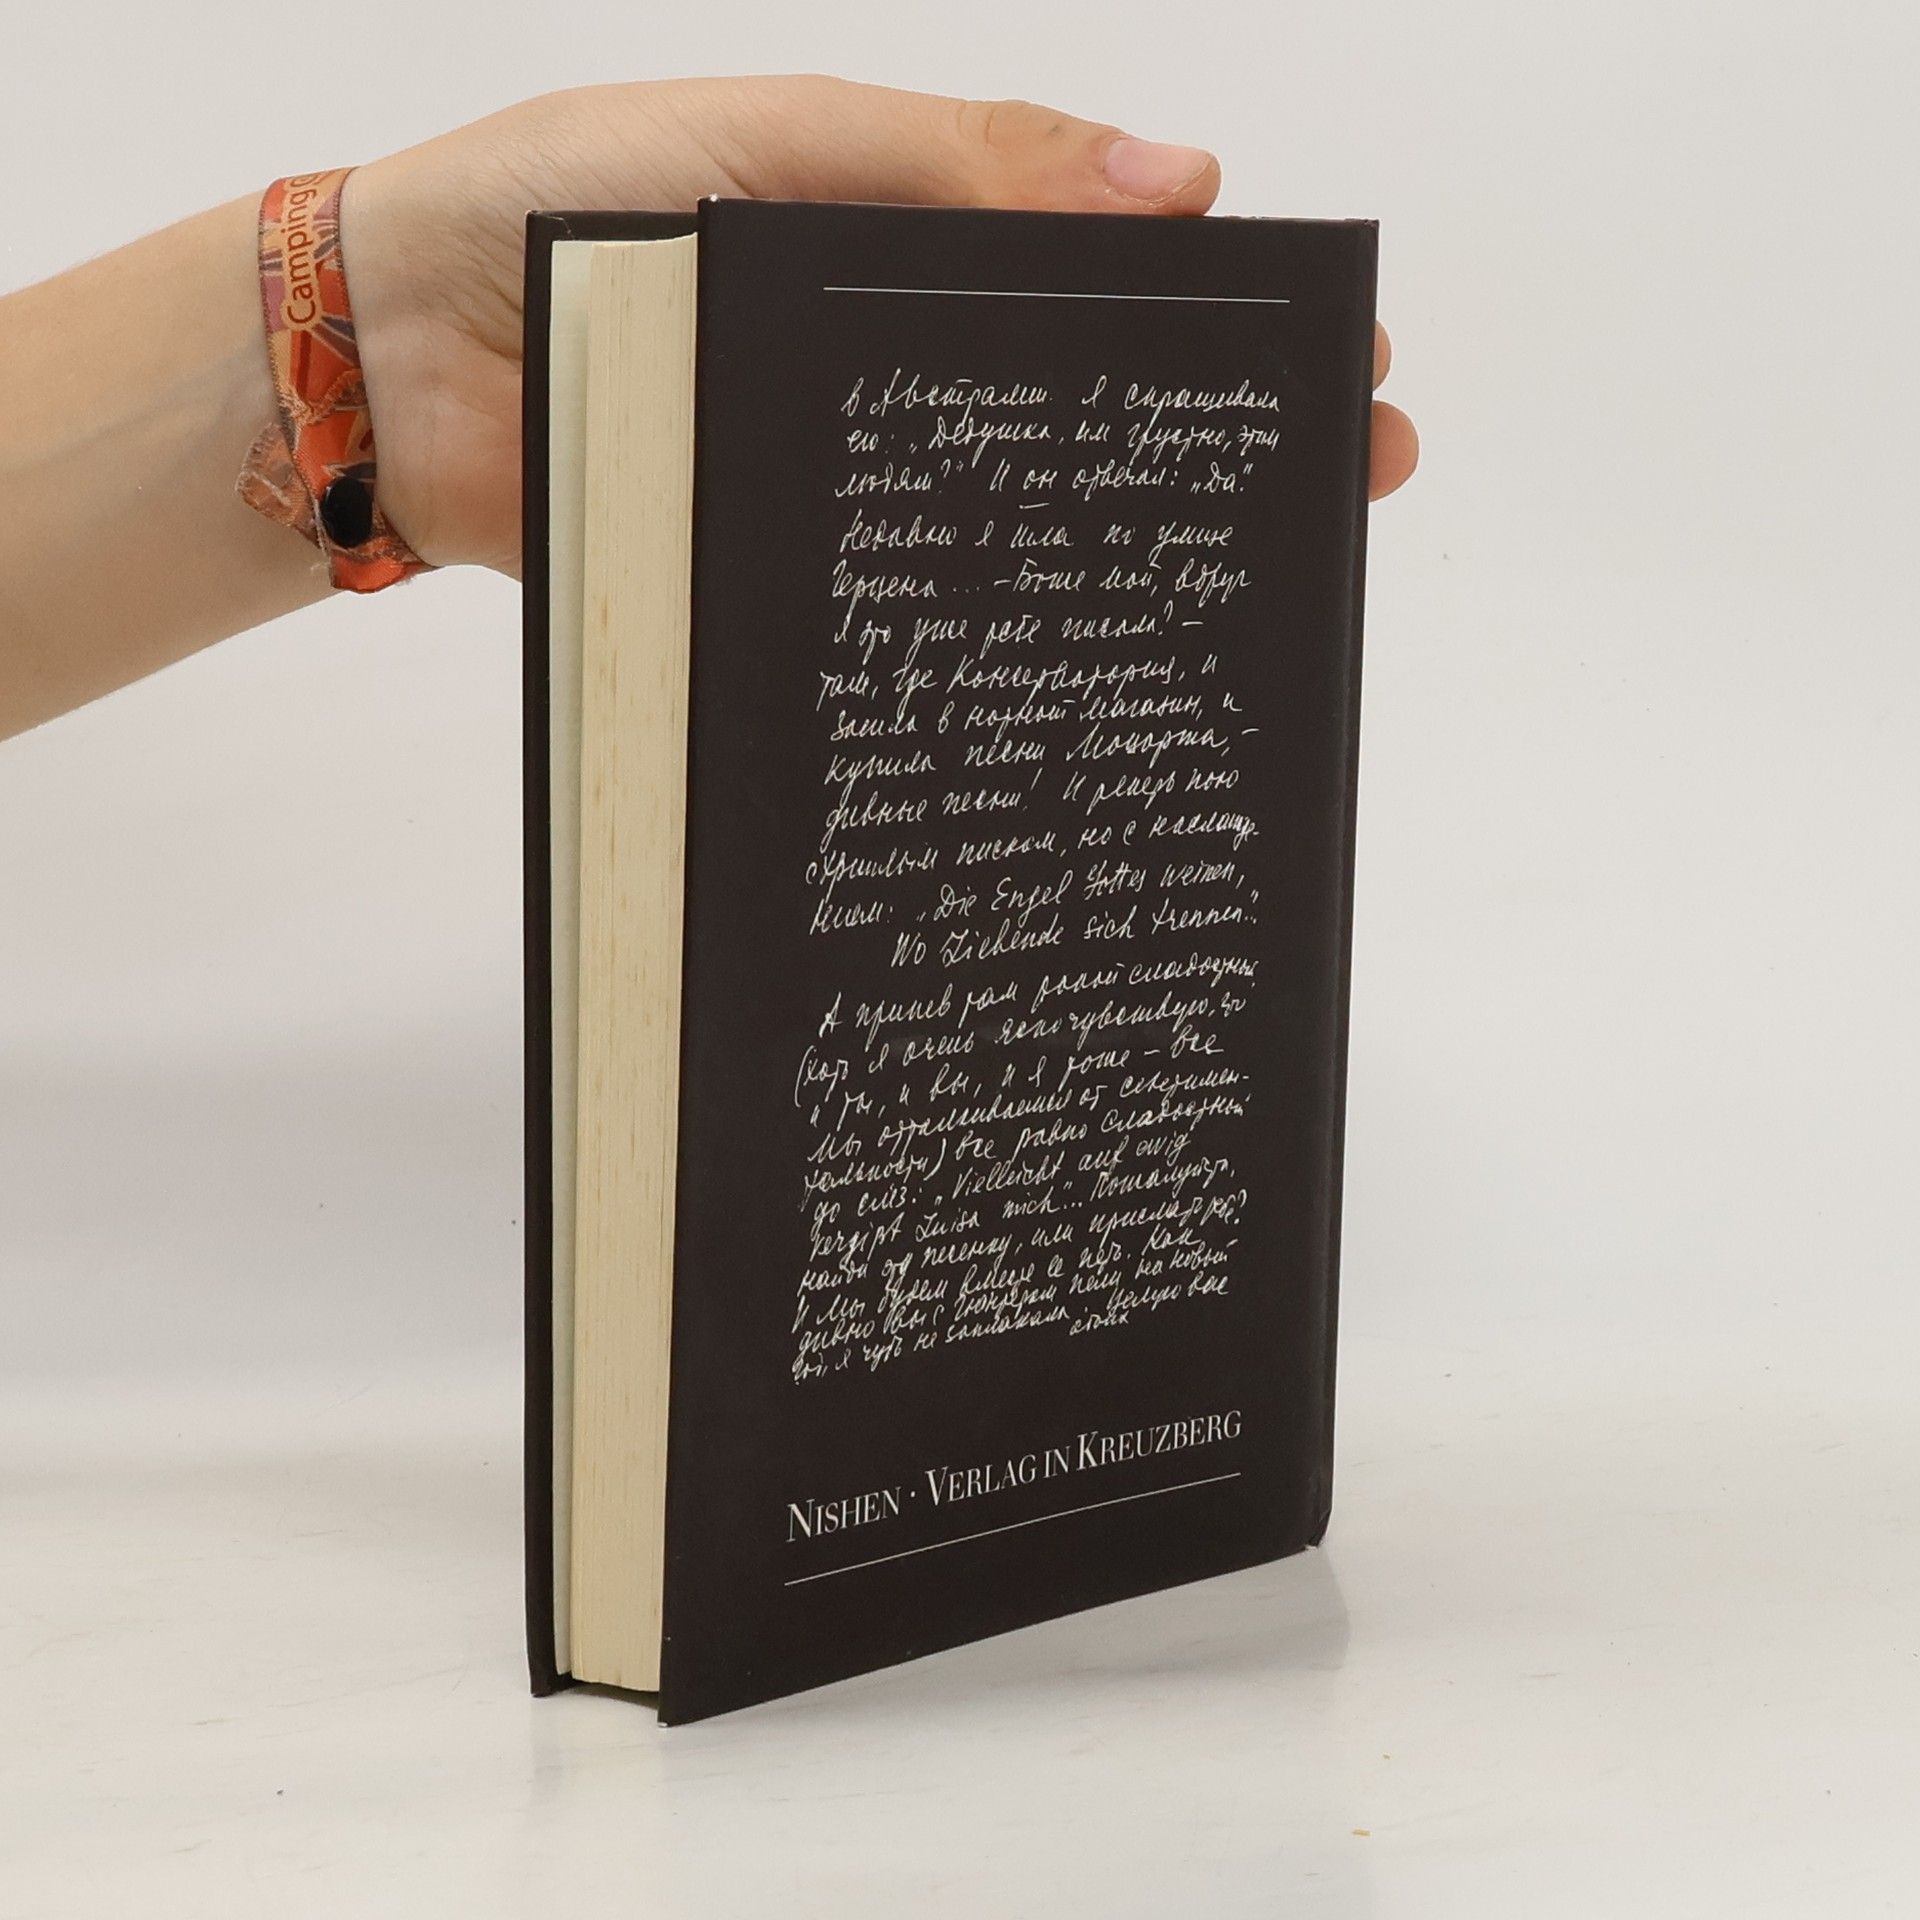 Camping
в Австралии. Я спрашивала
его: „Дедушка, им грустно, этим
людям?" И он отвечал: „Да".
Недавно я шла по улице
Герцена... – Боже мой, вдруг
я это уже тебе писала? –
там, где Консерватория, и
зашла в нотный магазин, и
купила песни Моцарта, –
дивные песни! И теперь пою
с хриплым писком, но с наслажде-
нием: „Die Engel Gottes weinen,
Wo Liebende sich trennen"..
А припев там такой сладостный
(хоть я очень ясно чувствую, что
и ты, и вы, и я тоже – все
мы отталкиваемся от сентимен-
тальности) все равно сладостный
до слёз: „Vielleicht auf ewig
vergißt Luisa mich"... Пожалуйста,
найди эту песенку, или прислать тебе?
И мы будем вместе её петь. Как
дивно вы с Гюнтером пели на новый
год, я чуть не заплакала. Целую вас
NISHEN · VERLAG IN KREUZBERG